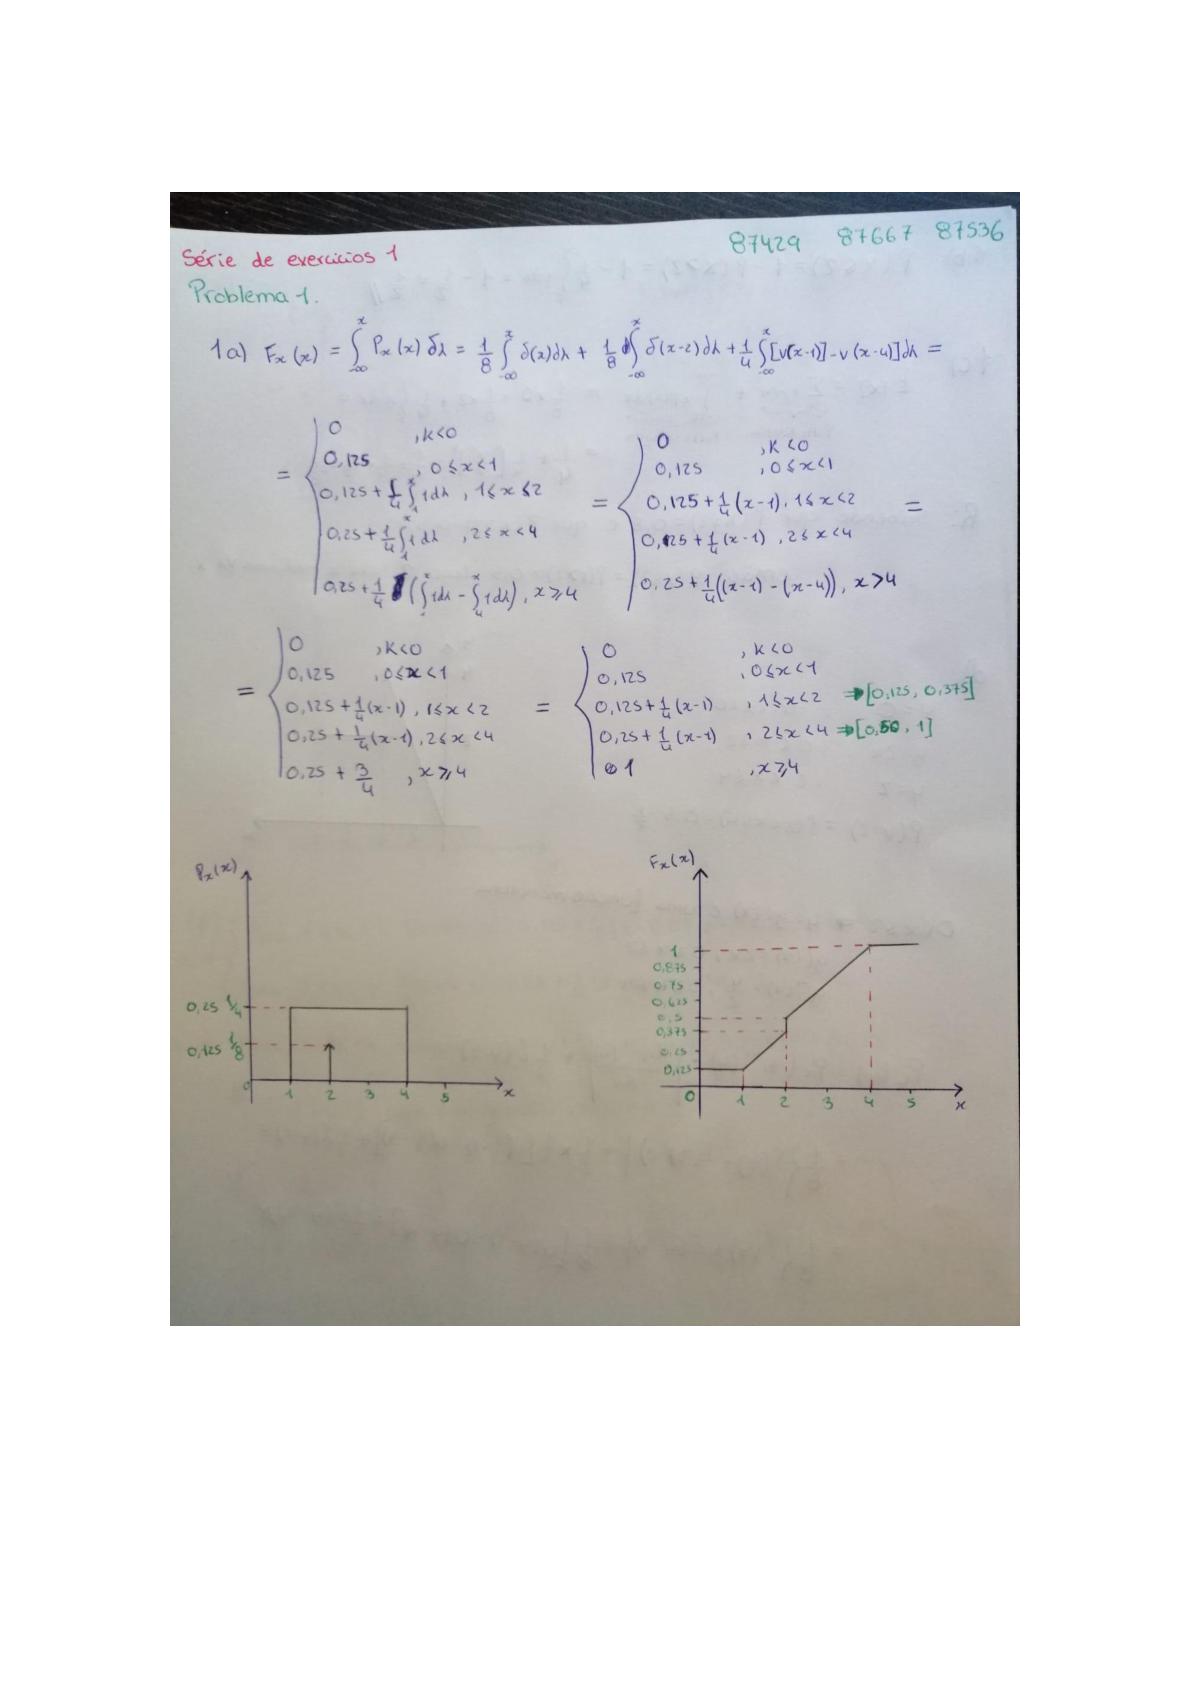 87429 87667 87536
Série de exercicios 1
Problema 1.
1a) Fx(x) = ∫_{-∞}^{x} Px(x) δλ = 1/8 ∫_{-∞}^{x} δ(x)dλ + 1/8 ∫_{-∞}^{x} δ(x-2)dλ + 1/4 ∫_{-∞}^{x} [v(x-1)] - v(x-4)]dλ =
= { 0 , k<0
0,125 , 0≤x<1
0,125 + 1/4 ∫_{1}^{x} 1dλ , 1≤x≤2
0,25 + 1/4 ∫_{1}^{x} 1dλ , 2≤x<4
0,25 + 1/4 (∫^{x} 1dλ - ∫_{4}^{x} 1dλ) , x≥4
= { 0 , k<0
0,125 , 0≤x<1
0,125 + 1/4 (x-1) , 1≤x<2 =
0,25 + 1/4 (x-1) , 2≤x<4
0,25 + 1/4 ((x-1) - (x-4)) , x>4
= { 0 , k<0
0,125 , 0≤x<1
0,125 + 1/4 (x-1) , 1≤x<2
0,25 + 1/4 (x-1) , 2≤x<4
0,25 + 3/4 , x≥4
= { 0 , k<0
0,125 , 0≤x<1
0,125 + 1/4 (x-1) , 1≤x<2 ⇒ [0,125, 0,375]
0,25 + 1/4 (x-1) , 2≤x<4 ⇒ [0,50, 1]
1 , x≥4
Px(x)
0,25 1/4
0,125 1/8
0 1 2 3 4 5 x
Fx(x)
1
0,875
0,75
0,625
0,5
0,375
0,25
0,125
0 1 2 3 4 5 x